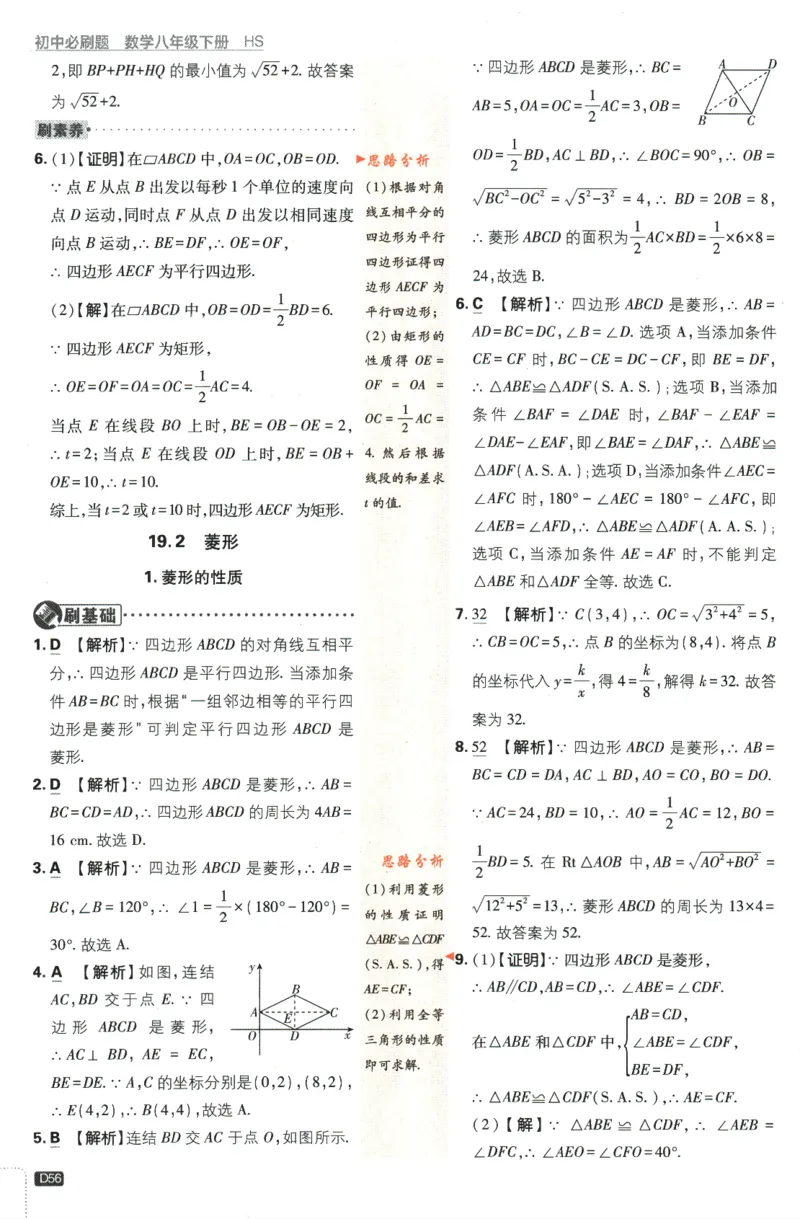 初中必刷题 数学八年级下册 HS
2,即 BP+PH+HQ 的最小值为 √52+2. 故答案
为 √52+2.
刷素养
6. (1)【证明】在▱ABCD 中,OA=OC,OB=OD.
∵ 点 E 从点 B 出发以每秒 1 个单位的速度向
点 D 运动,同时点 F 从点 D 出发以相同速度
向点 B 运动,∴ BE=DF,∴ OE=OF,
∴ 四边形 AECF 为平行四边形.
(2)【解】在▱ABCD 中,OB=OD=1/2BD=6.
∵ 四边形 AECF 为矩形,
∴ OE=OF=OA=OC=1/2AC=4.
当点 E 在线段 BO 上时,BE=OB-OE=2,
∴ t=2;当点 E 在线段 OD 上时,BE=OB+
OE=10,∴ t=10.
综上,当 t=2 或 t=10 时,四边形 AECF 为矩形.
思路分析
(1)根据对角
线互相平分的
四边形为平行
四边形证得四
边形 AECF 为
平行四边形;
(2)由矩形的
性质得 OE=
OF = OA =
OC=1/2AC=
4. 然后根据
线段的和差求
t 的值.
19.2 菱形
1.菱形的性质
刷基础
1. D 【解析】∵ 四边形 ABCD 的对角线互相平
分,∴ 四边形 ABCD 是平行四边形. 当添加条
件 AB=BC 时,根据“一组邻边相等的平行四
边形是菱形”可判定平行四边形 ABCD 是
菱形.
2. D 【解析】∵ 四边形 ABCD 是菱形,∴ AB=
BC=CD=AD,∴ 四边形 ABCD 的周长为 4AB=
16 cm. 故选 D.
3. A 【解析】∵ 四边形 ABCD 是菱形,∴ AB=
BC,∠B=120°,∴ ∠1=1/2×(180°-120°)=
30°. 故选 A.
4. A 【解析】如图,连结
AC,BD 交于点 E. ∵ 四
边形 ABCD 是菱形,
∴ AC⊥BD, AE = EC,
BE=DE. ∵ A,C 的坐标分别是(0,2),(8,2),
∴ E(4,2),∴ B(4,4),故选 A.
y
B
A
E
C
O
D
x
5. B 【解析】连结 BD 交 AC 于点 O,如图所示.
思路分析
(1)利用菱形
的性质证明
△ABE≌△CDF
(S. A. S.),得
AE=CF;
(2)利用全等
三角形的性质
即可求解.
∵ 四边形 ABCD 是菱形,∴ BC=
AB=5,OA=OC=1/2AC=3,OB=
OD=1/2BD,AC⊥BD,∴ ∠BOC=90°,∴ OB=
√BC²-OC² = √5²-3² = 4,∴ BD=2OB=8,
∴ 菱形 ABCD 的面积为1/2AC×BD=1/2×6×8=
24,故选 B.
A
D
O
B
C
6. C 【解析】∵ 四边形 ABCD 是菱形,∴ AB=
AD=BC=DC,∠B=∠D. 选项 A,当添加条件
CE=CF 时,BC-CE=DC-CF,即 BE=DF,
∴ △ABE≌△ADF(S. A. S.);选项 B,当添加
条件 ∠BAF = ∠DAE 时,∠BAF - ∠EAF =
∠DAE-∠EAF,即∠BAE=∠DAF,∴ △ABE≌
△ADF(A. S. A.);选项 D,当添加条件∠AEC=
∠AFC 时,180°-∠AEC=180°-∠AFC,即
∠AEB=∠AFD,∴ △ABE≌△ADF(A. A. S.);
选项 C,当添加条件 AE=AF 时,不能判定
△ABE 和△ADF 全等. 故选 C.
7. 32 【解析】∵ C(3,4),∴ OC=√3²+4²=5,
∴ CB=OC=5,∴ 点 B 的坐标为(8,4). 将点 B
的坐标代入 y=k/x,得 4=k/8,解得 k=32. 故答
案为 32.
8. 52 【解析】∵ 四边形 ABCD 是菱形,∴ AB=
BC=CD=DA,AC⊥BD,AO=CO,BO=DO.
∵ AC=24,BD=10,∴ AO=1/2AC=12,BO=
1/2BD=5. 在 Rt△AOB 中,AB=√AO²+BO² =
√12²+5²=13,∴ 菱形 ABCD 的周长为 13×4=
52. 故答案为 52.
9. (1)【证明】∵ 四边形 ABCD 是菱形,
∴ AB∥CD,AB=CD,∴ ∠ABE=∠CDF.
AB=CD,
在△ABE 和△CDF 中,{∠ABE=∠CDF,
BE=DF,
∴ △ABE≌△CDF(S. A. S.),∴ AE=CF.
(2)【解】∵ △ABE≌△CDF,∴ ∠AEB =
∠DFC,∴ ∠AEO=∠CFO=40°.
D56